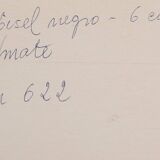 Bisel negro - 6 c
mate
622